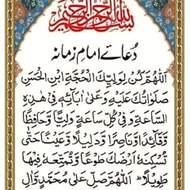 بسم الله الرحمن الرحيم
دُعائے امامِ زمانہ
اَللّٰهُمَّ كُنْ لِوَلِيِّكَ الْحُجَّةِ ابْنِ الْحَسَنِ
صَلَوَاتُكَ عَلَيْهِ وَعَلٰى اٰبَائِهٖ فِيْ هٰذِهِ
السَّاعَةِ وَفِيْ كُلِّ سَاعَةٍ وَلِيًّا وَحَافِظًا
وَقَائِدًا وَنَاصِرًا وَدَلِيْلًا وَعَيْنًا حَتّٰى
تُسْكِنَهٗ اَرْضَكَ طَوْعًا وَتُمَتِّعَهٗ فِيْهَا
طَوِيْلًا اَللّٰهُمَّ صَلِّ عَلٰى مُحَمَّدٍ وَّاٰلِ